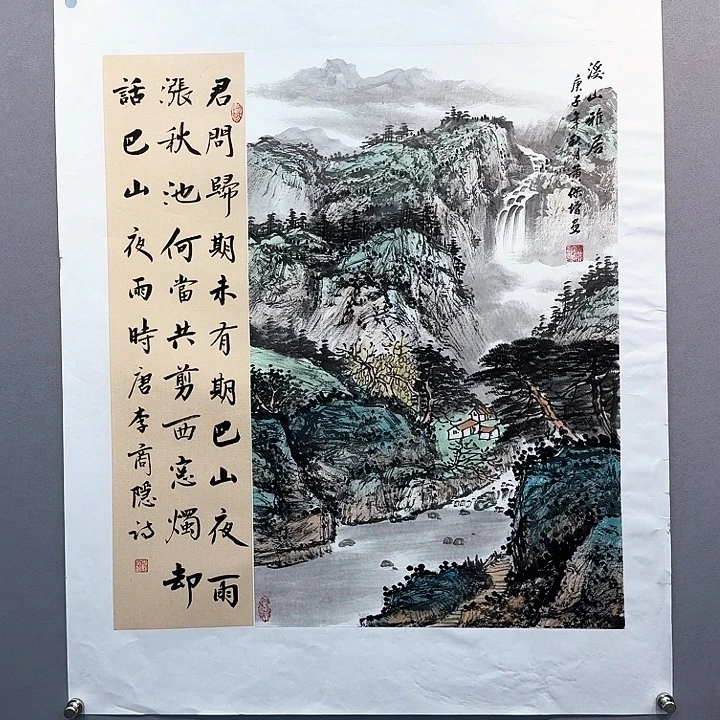 溪山雅居
庚子年秋月
君問歸期未有期巴山夜雨
漲秋池何當共剪西窓燭却
話巴山夜雨時唐李商隱詩